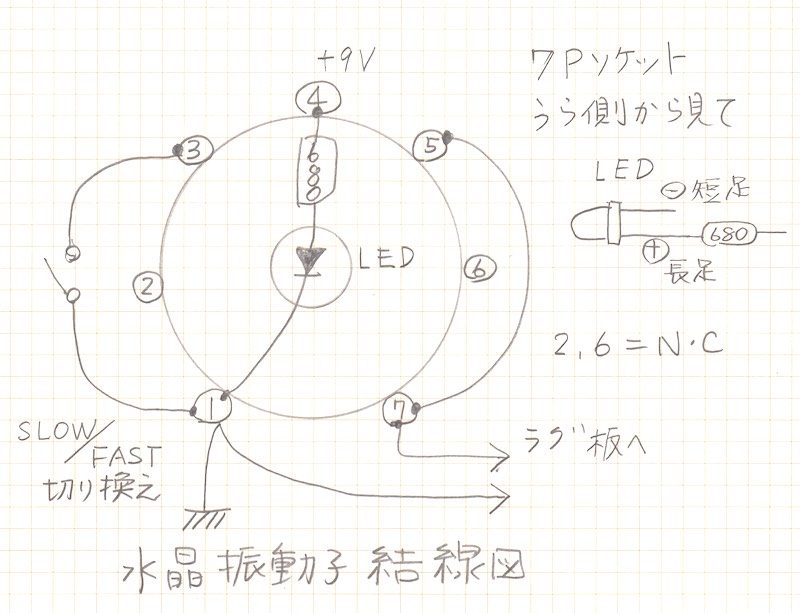 +9V
7Pソケット
うら側から見て
4
3
5
680
LED
⊖短足
680
⊕
長足
LED
2
6
2,6=N・C
1
7
SLOW/FAST
切り換え
ラグ板へ
水晶振動子結線図